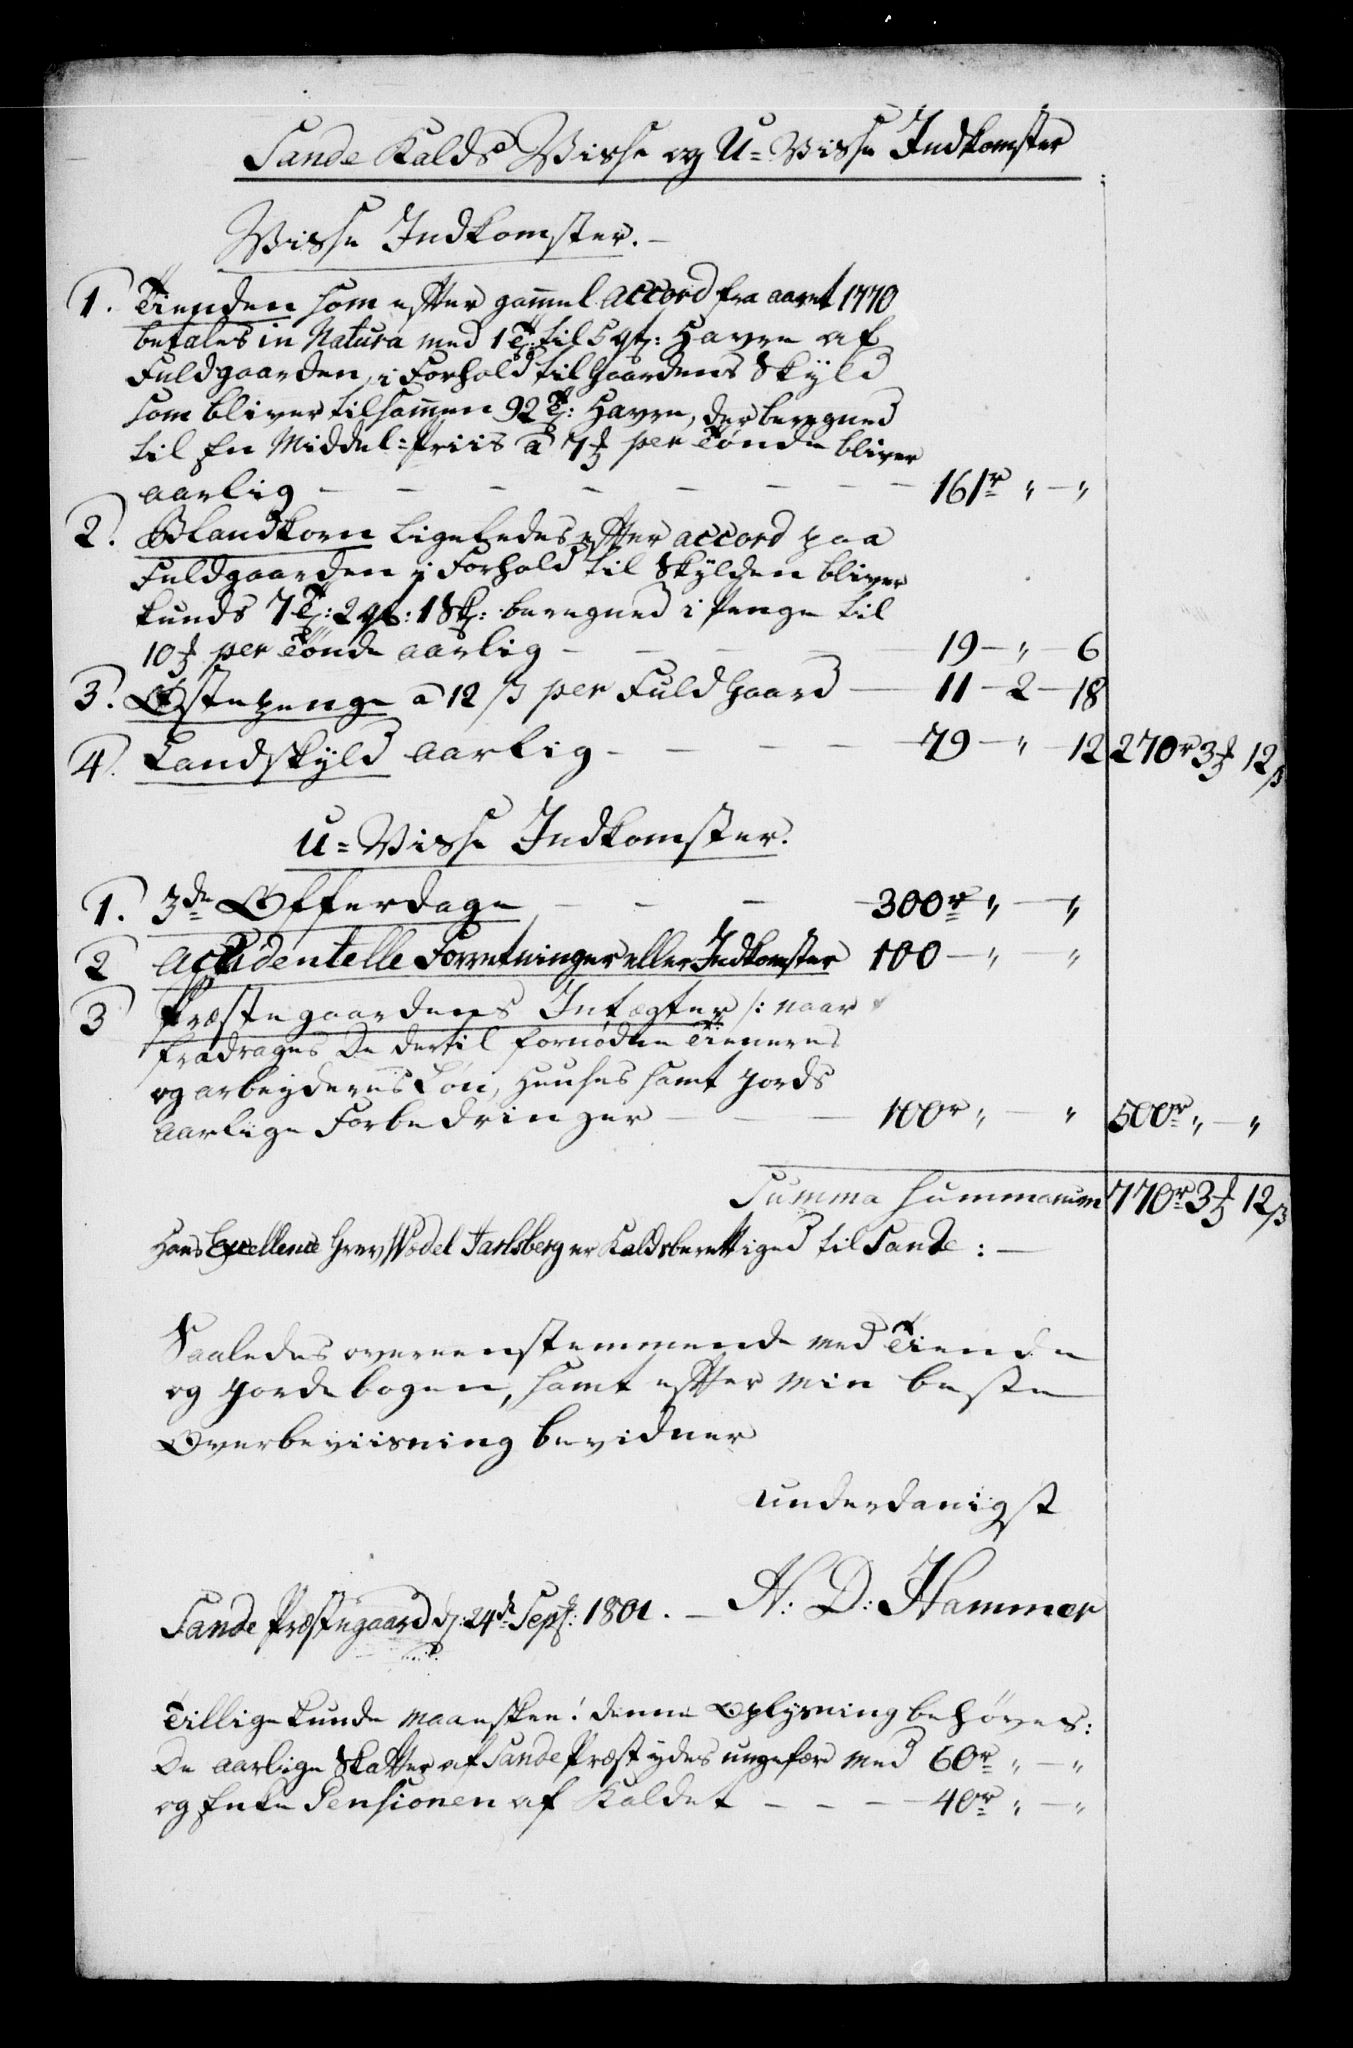 Sande Kalds Visse og U=Visse Indkomster
Visse Indkomster.
1. Tienden som efter gammel accord fra aaret 1770
betales in Natura med 1 Td: til 5 qt: Havre af
Fuldgaarden, i Forhold til Gaardens Skyld
som bliver tilsammen 92 Td: Havre, der beregned
til En Middel=Priis a 7 ℔ per Tønde bliver
aarlig — — — — — — — 161 r „ — „
2. Blandkorn ligeledes efter accord paa
Fuldgaarden i Forhold til Skylden bliver
kunds 7 Td: 2 qt: 1 Sk: beregned i Penge til
10 ℔ per Tønde aarlig — — — — 19 — „ — 6
3. Ostepenge a 12 β per Fuld Gaard — 11 — 2 — 18
4. Landskyld aarlig — — — — 79 — „ — 12 270 r 3 ℔ 12 β
U=Visse Indkomster.
1. 3de Offerdage — — — 300 r „ — „
2 Accidentelle Forretninger eller Indkomster 100 — „ — „
3 Præstegaardens Intægter /: naar
fradrages De dertil fornødne Tieneres
og arbeyderes Løn, Huuses samt Jords
aarlige Forbedringer — — — 100 r „ — „ 500 r „ — „
Summa Summarum 770 r 3 ℔ 12 β
Hans Excellence Grev Wedel Jarlsberg er Kaldsberettiged til Sande: —
Saaledes overeenstemmende med Tiende
og Jordebogen, samt efter min beste
Overbeviisning bevidner
underdanigst
Sande Præstegaard d: 24de Sept: 1801. — H: D: Hammer
Tillige kunde maaskee! denne Oplysning behøves:
De aarlige Skatter af Sande Præst ydes ungefær med 60 r „ — „
og Enke Pensionen af Kaldet — — — 40 r „ — „